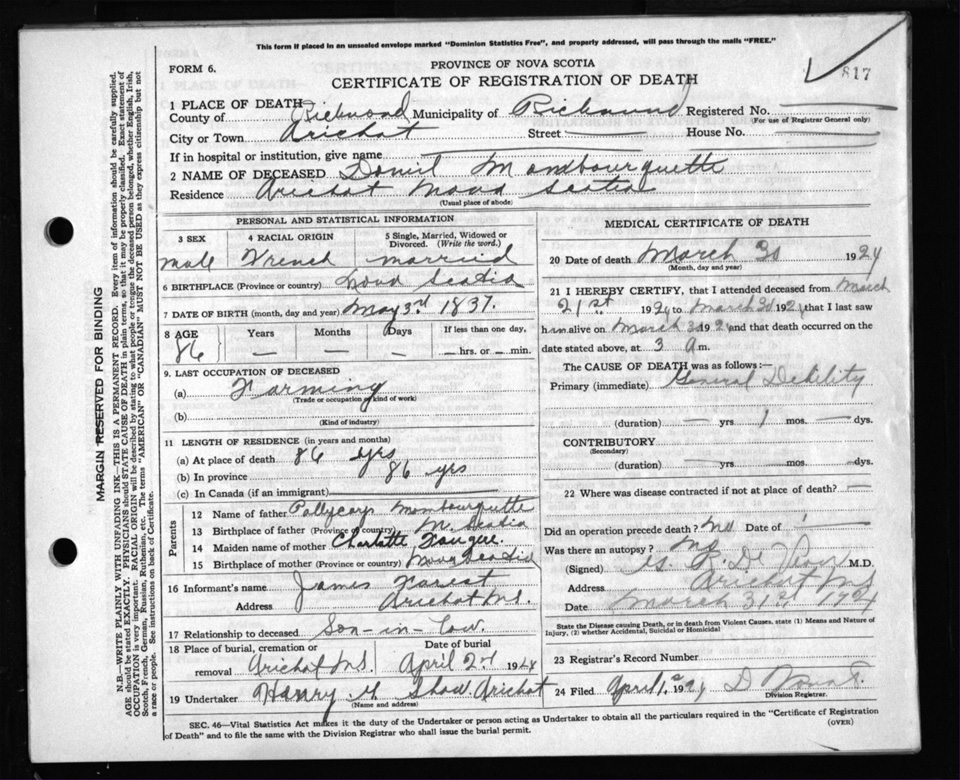 This form if placed in an unsealed envelope marked "Dominion Statistics Free", and properly addressed, will pass through the mails "FREE."
FORM 6.
PROVINCE OF NOVA SCOTIA
CERTIFICATE OF REGISTRATION OF DEATH
817
1 PLACE OF DEATH
County of Richmond Municipality of Richmond Registered No.
(For use of Registrar General only)
City or Town Arichat Street House No.
If in hospital or institution, give name
2 NAME OF DECEASED Daniel Mombourquette
Residence Arichat Nova Scotia
(Usual place of abode)
PERSONAL AND STATISTICAL INFORMATION
3 SEX 4 RACIAL ORIGIN 5 Single, Married, Widowed or Divorced. (Write the word.)
Male French married
6 BIRTHPLACE (Province or country) Nova Scotia
7 DATE OF BIRTH (month, day and year) May 3rd 1837.
8 AGE Years Months Days If less than one day,
86 — — — — hrs. or — min.
9. LAST OCCUPATION OF DECEASED
(a) Farming
(Trade or occupation of kind of work)
(b)
(Kind of industry)
11 LENGTH OF RESIDENCE (in years and months)
(a) At place of death 86 yrs
(b) In province 86 yrs
(c) In Canada (if an immigrant)
Parents
12 Name of father Pollycarp Mombourquette
13 Birthplace of father (Province of country) N. Scotia
14 Maiden name of mother Charlotte Fougere.
15 Birthplace of mother (Province or country) Nova Scotia
16 Informant's name James Forest
Address Arichat N.S.
17 Relationship to deceased Son-in-law.
18 Place of burial, cremation or removal Arichat N.S. Date of burial April 2nd 1924
19 Undertaker Henry H Shaw Arichat
(Name and address)
MEDICAL CERTIFICATE OF DEATH
20 Date of death March 30 1924
(Month, day and year)
21 I HEREBY CERTIFY, that I attended deceased from March
21st 1924 to March 30 1924 that I last saw
him alive on March 3 192 and that death occurred on the
date stated above, at 3 a m.
The CAUSE OF DEATH was as follows:—
Primary (immediate) General Debility
(duration) — yrs 1 mos. — dys.
CONTRIBUTORY
(Secondary)
(duration) — yrs. — mos. — dys.
22 Where was disease contracted if not at place of death? —
Did an operation precede death? No Date of
Was there an autopsy? No
(Signed) M.D.
Address Arichat N.S.
Date March 31st 1924
State the Disease causing Death, or in death from Violent Causes, state (1) Means and Nature of Injury, (2) whether Accidental, Suicidal or Homicidal
23 Registrar's Record Number
24 Filed April 1, 1924 D
Division Registrar.
SEC. 46—Vital Statistics Act makes it the duty of the Undertaker or person acting as Undertaker to obtain all the particulars required in the "Certificate of Registration
of Death" and to file the same with the Division Registrar who shall issue the burial permit.
(OVER)
MARGIN RESERVED FOR BINDING
N.B.—WRITE PLAINLY WITH UNFADING INK—THIS IS A PERMANENT RECORD. Every item of information should be carefully supplied.
AGE should be stated EXACTLY. PHYSICIANS should STATE CAUSE OF DEATH in plain terms, so that it may be properly classified. Exact statement of
OCCUPATION is very important. RACIAL ORIGIN will be described by stating to what people or tongue the deceased person belonged, whether English, Irish,
Scotch, French, German, Russian, Ruthenian, etc. The terms "AMERICAN" OR "CANADIAN" MUST NOT BE USED as they express citizenship but not
a race or people. See instructions on back of Certificate.